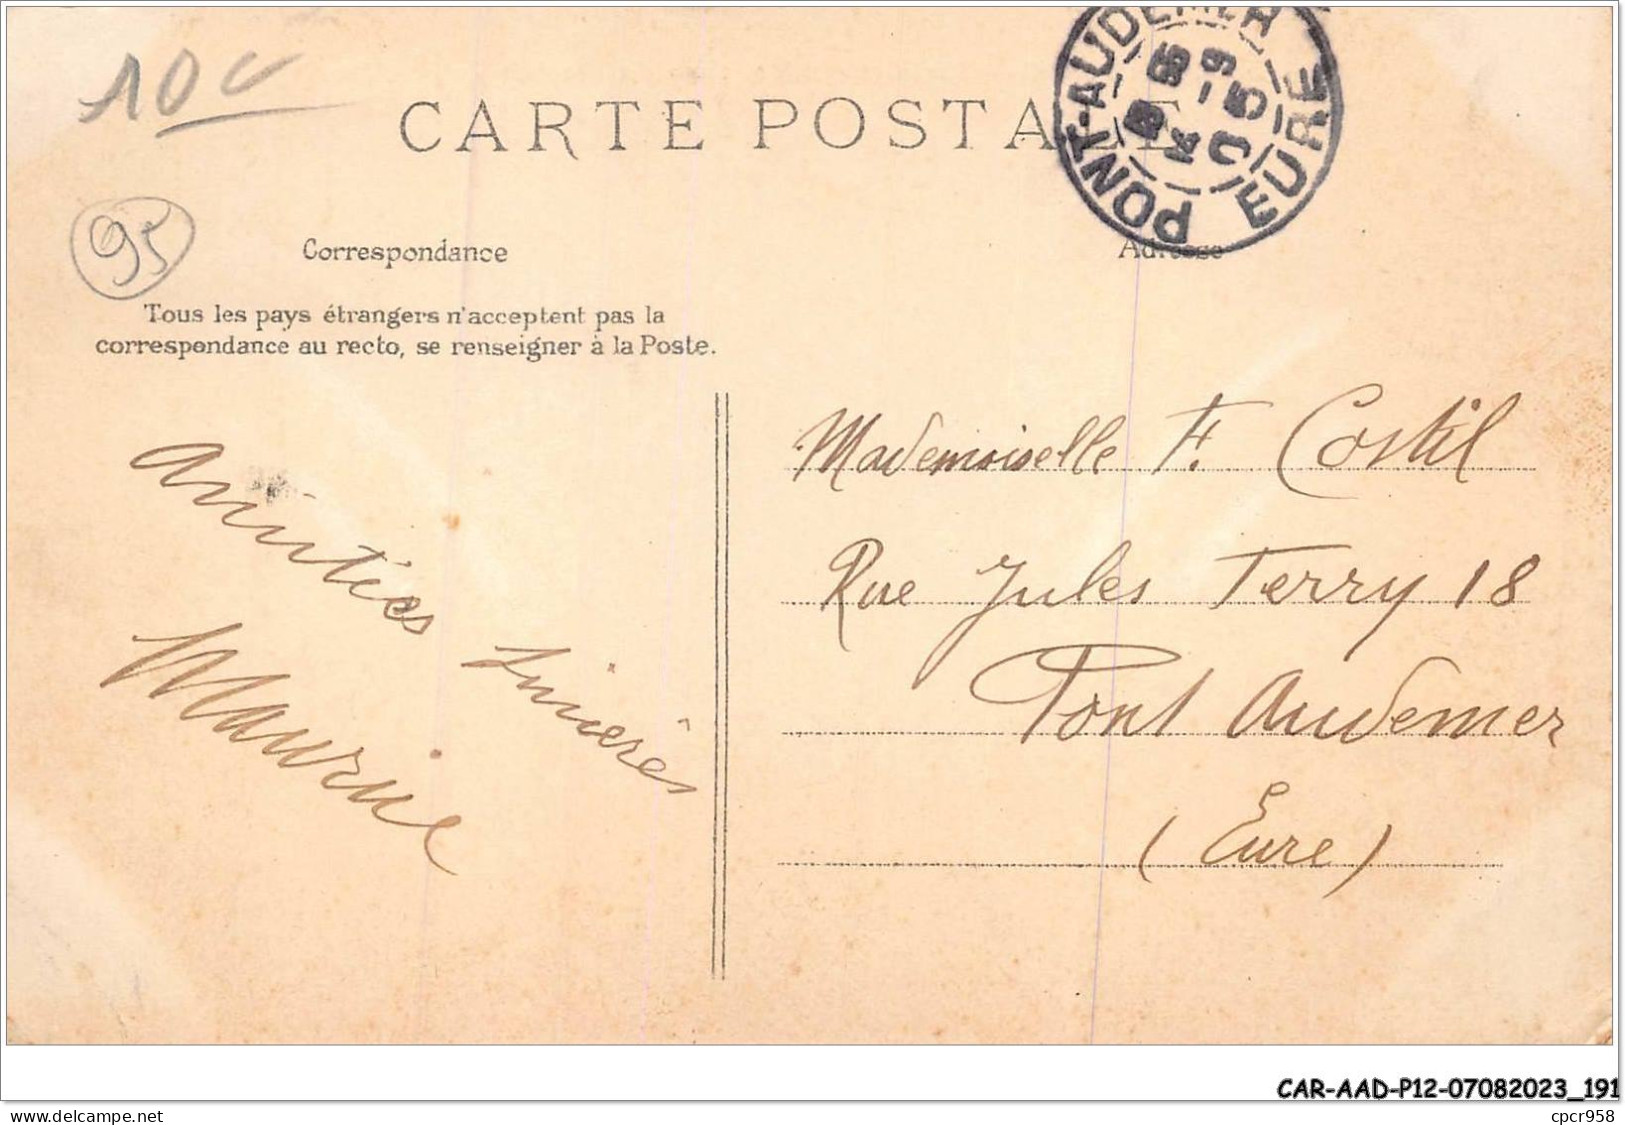 10c
CARTE POSTALE
PONT-AUDEMER
EURE
95
Correspondance
Adresse
Tous les pays étrangers n'acceptent pas la
correspondance au recto, se renseigner à la Poste.
Amitiées sincerês
Maurice
Mademoiselle F. Costil
Rue Jules Ferry 18
Pont Audemer
(Eure)
CAR-AAD-P12-07082023_191
www.delcampe.net
cpcr958